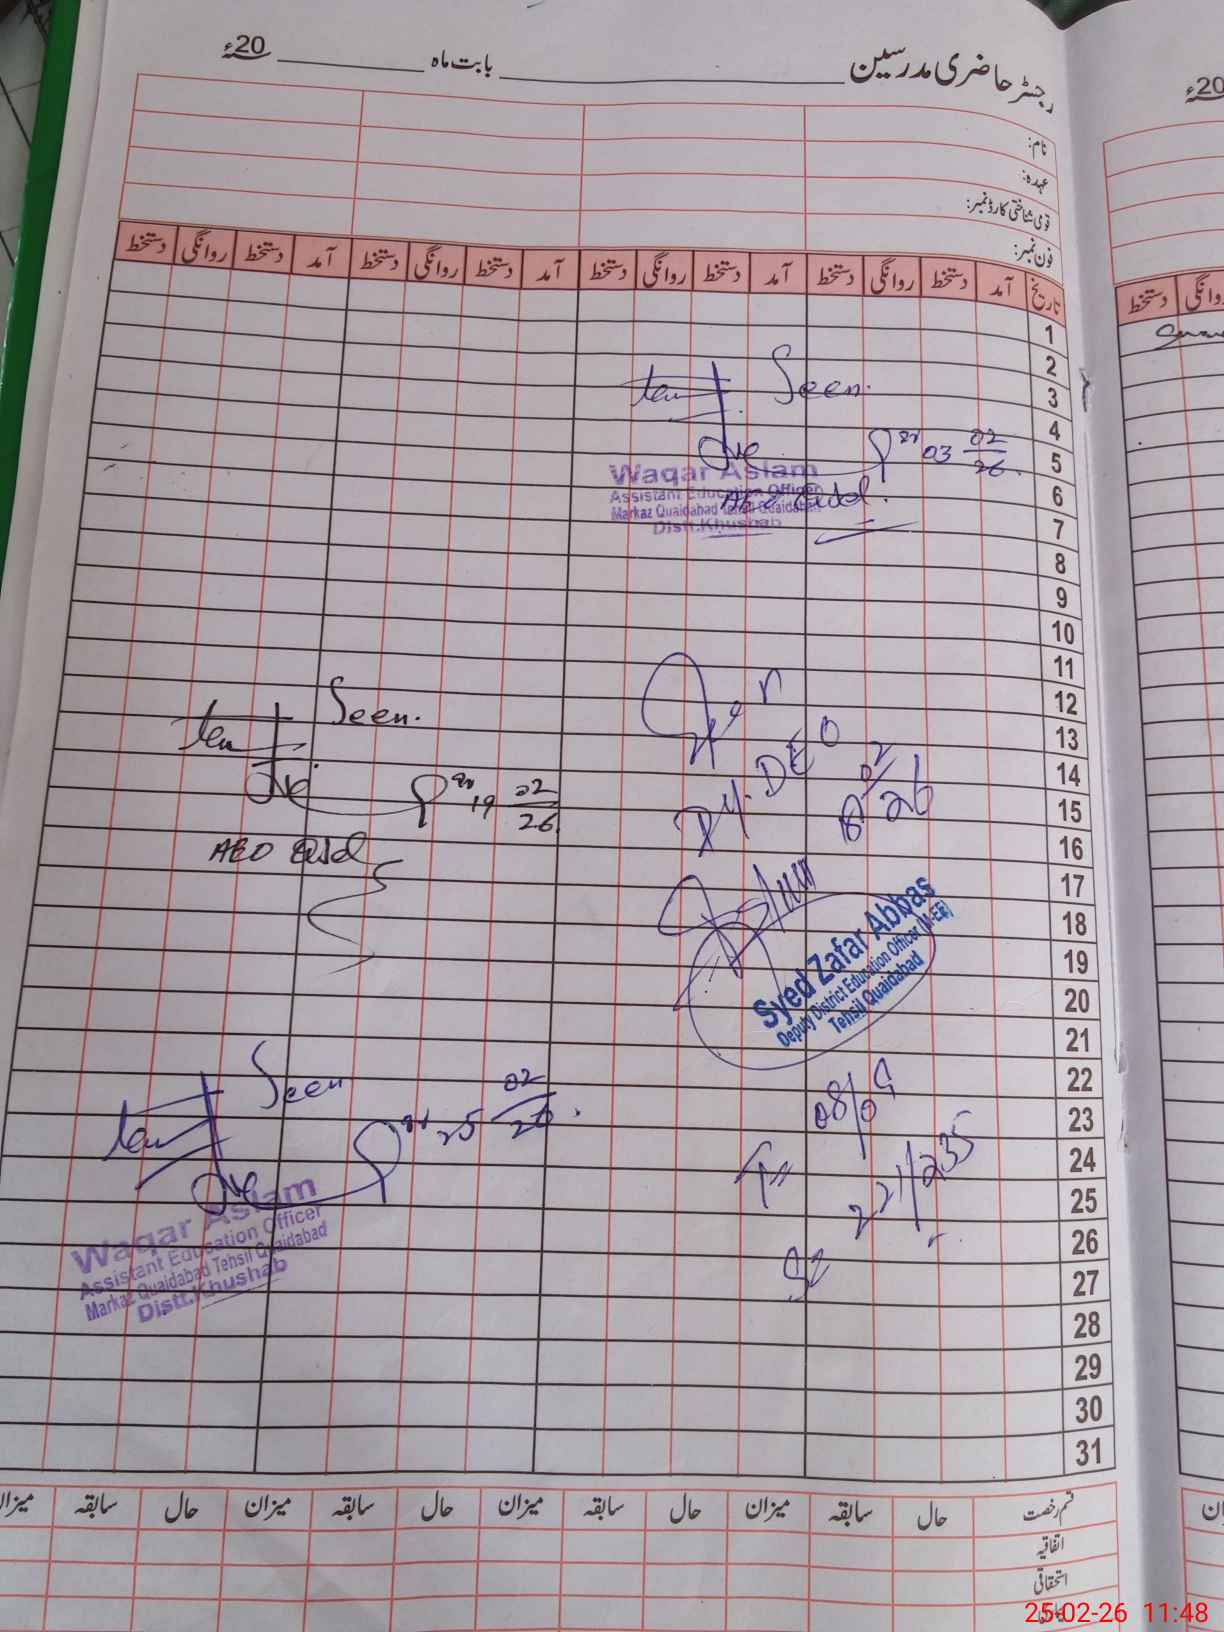 رجسٹر حاضری مدرسین بابت ماہ 20ء
نام:
عہدہ:
قومی شناختی کارڈ نمبر:
فون نمبر:
تاریخ آمد دستخط روانگی دستخط آمد دستخط روانگی دستخط آمد دستخط روانگی دستخط آمد دستخط روانگی دستخط
1
2
3
4
5
6
7
8
9
10
11
12
13
14
15
16
17
18
19
20
21
22
23
24
25
26
27
28
29
30
31
Seen.
03 02/26.
Waqar Aslam
Assistant Education Officer
Markaz Quaidabad Tehsil Quaidabad
Distt.Khushab
AEO
Dy. DEO
02/26
Syed Zafar Abbas
Deputy District Education Officer (M-EE)
Tehsil Quaidabad
08/09
221/235
Seen.
19 02/26
AEO
Seen
25 02/26.
Waqar Aslam
Assistant Education Officer
Markaz Quaidabad Tehsil Quaidabad
Distt.Khushab
قسم رخصت حال سابقہ میزان حال سابقہ میزان حال سابقہ میزان حال سابقہ میزان
اتفاقیہ
استحقاقی
20ء
روانگی دستخط
25-02-26 11:48